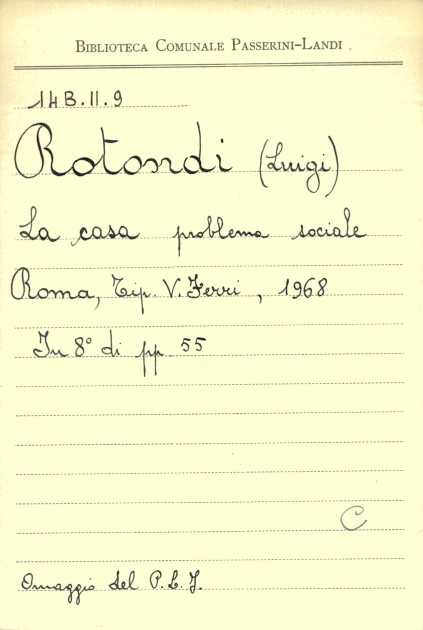 BIBLIOTECA COMUNALE PASSERINI-LANDI.
14B.II.9
Rotondi (Luigi)
La casa problema sociale
Roma, Tip. V. Ferri, 1968
In 8° di pp. 55
C
Omaggio del P.L.I.